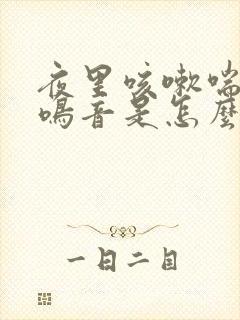 夜里咳嗽喘
鸣音是怎麼
一目二目